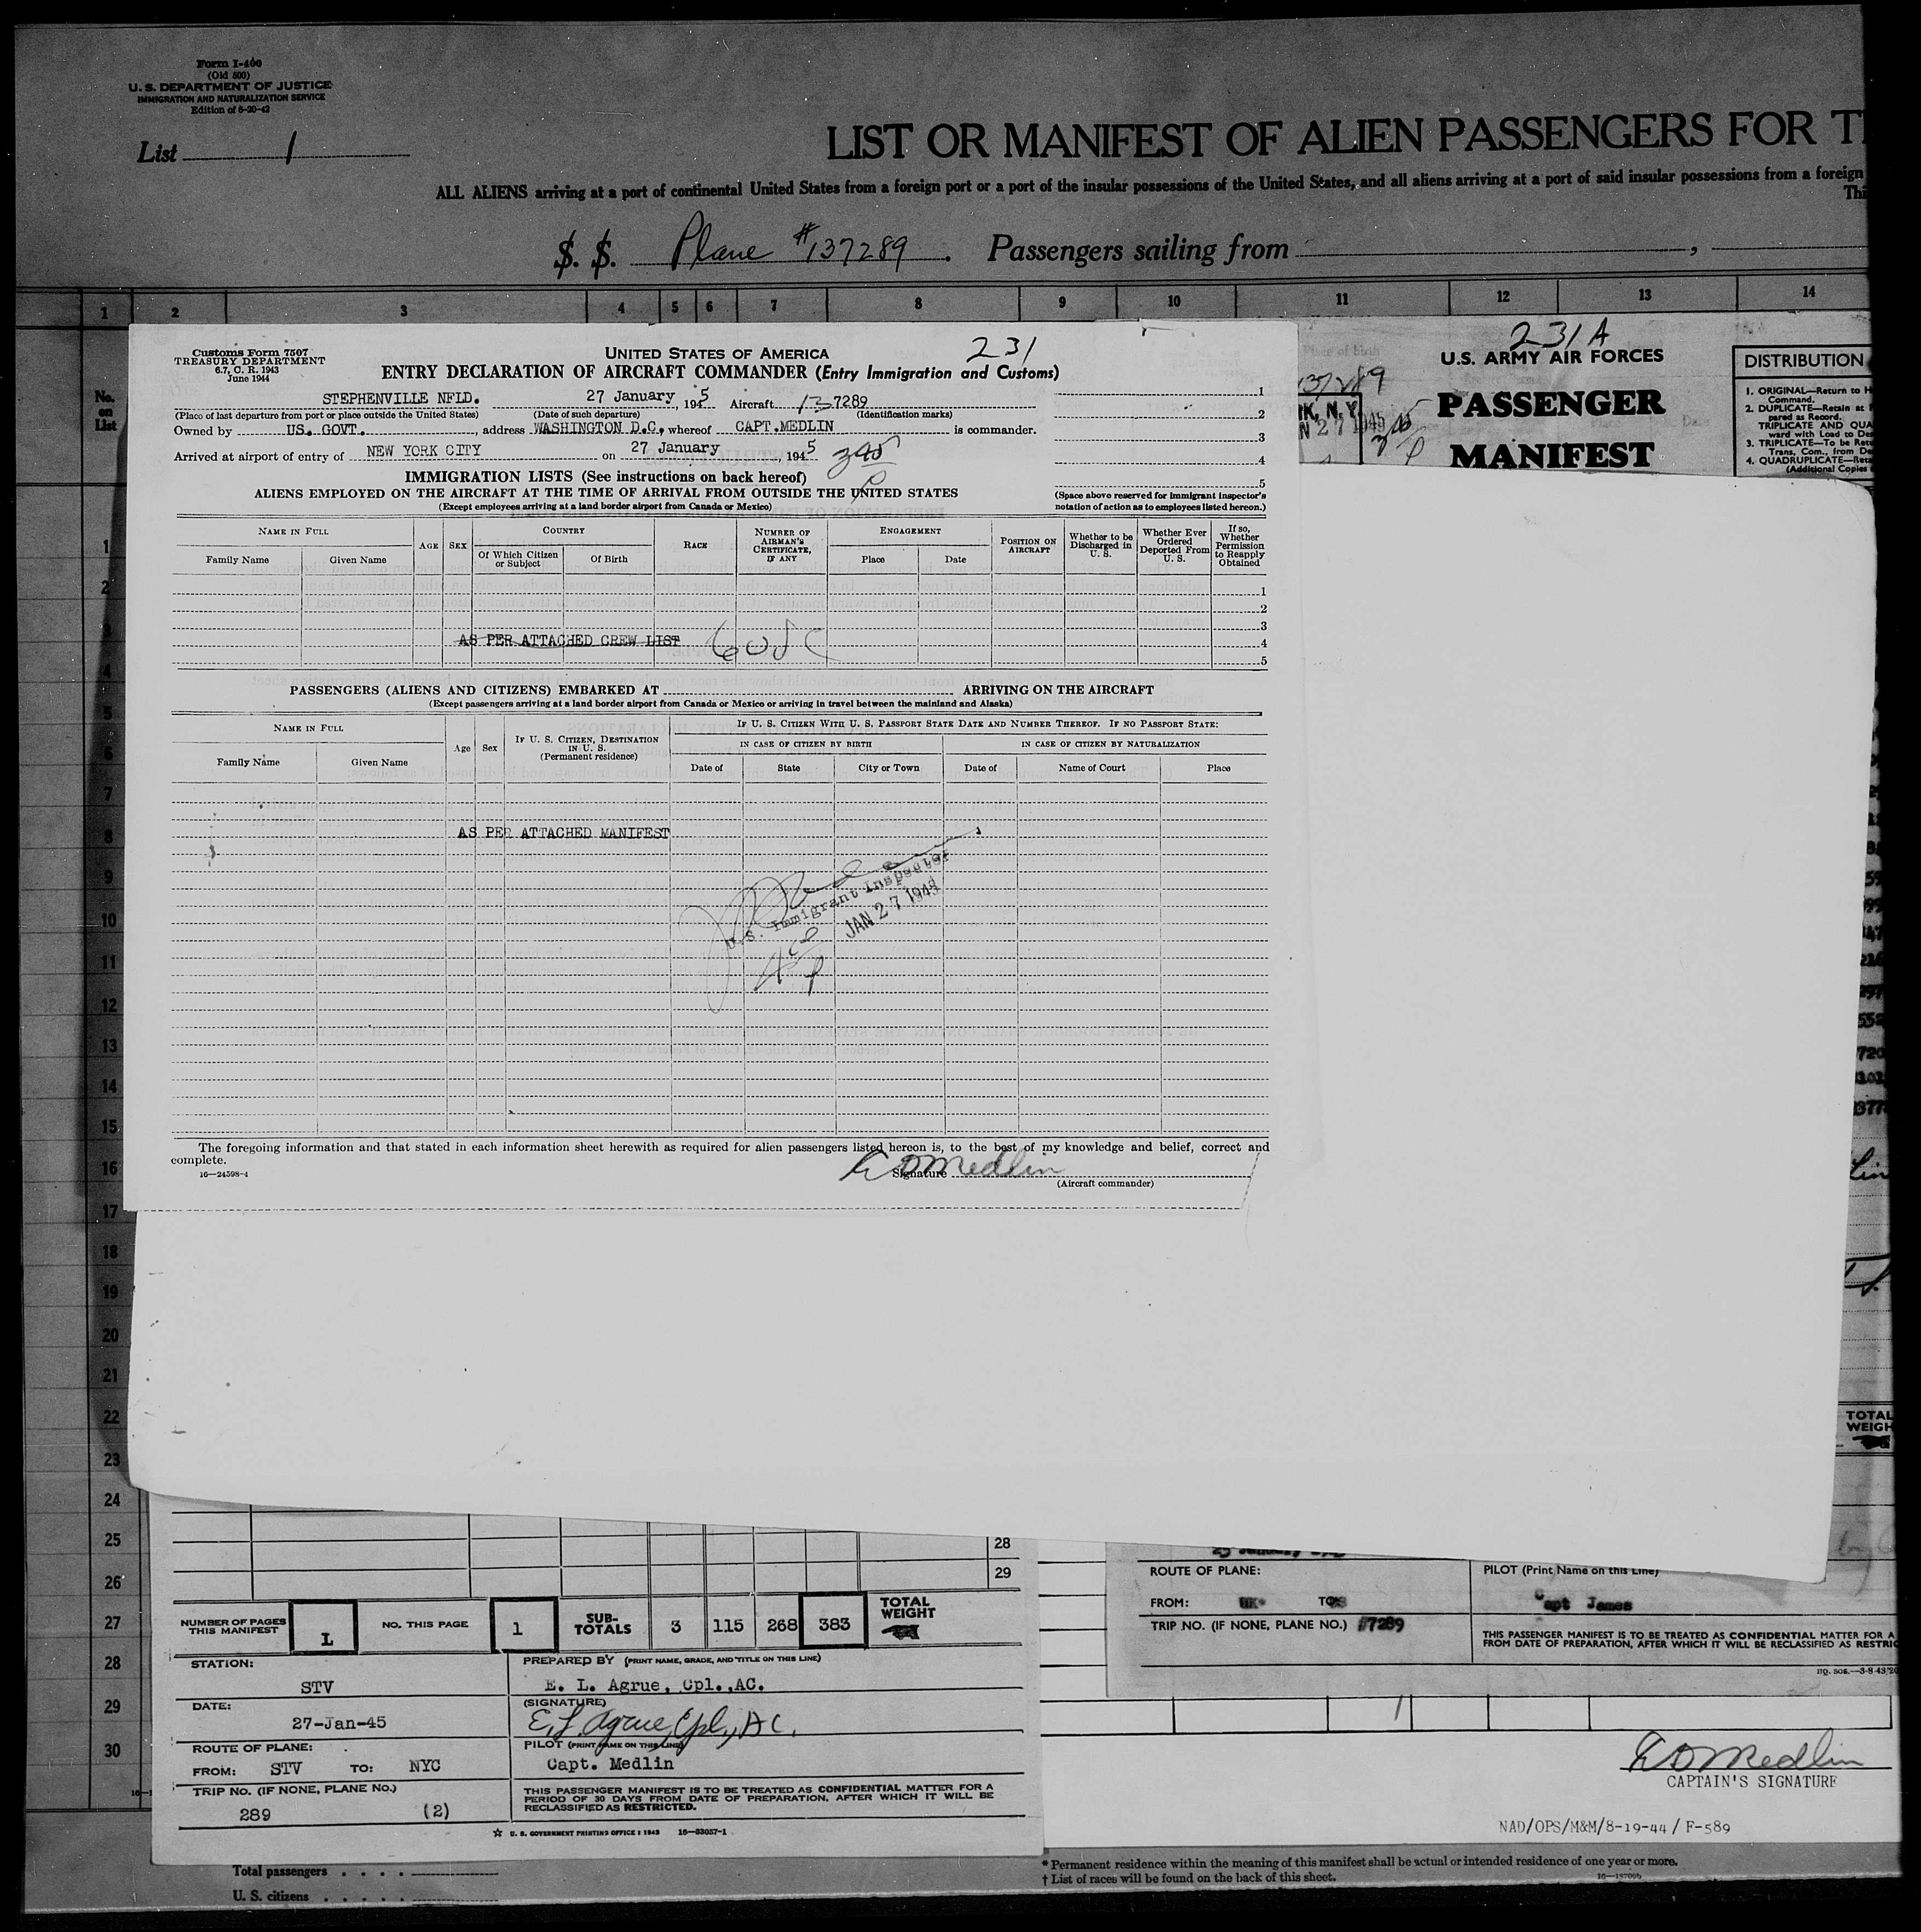 Form I-400
(Old 500)
U. S. DEPARTMENT OF JUSTICE
IMMIGRATION AND NATURALIZATION SERVICE
Edition of 6-20-42
List 1
LIST OR MANIFEST OF ALIEN PASSENGERS FOR T
ALL ALIENS arriving at a port of continental United States from a foreign port or a port of the insular possessions of the United States, and all aliens arriving at a port of said insular possessions from a foreign
Thi
S. S. Plane #137289 . Passengers sailing from ,
1 2 3 4 5 6 7 8 9 10 11 12 13 14
No. on List
Customs Form 7507
TREASURY DEPARTMENT
6.7, C. R. 1943
June 1944
UNITED STATES OF AMERICA
231
ENTRY DECLARATION OF AIRCRAFT COMMANDER (Entry Immigration and Customs)
STEPHENVILLE NFLD. 27 January, 1945 Aircraft 137289
(Place of last departure from port or place outside the United States) (Date of such departure) (Identification marks)
Owned by US. GOVT., address WASHINGTON D.C, whereof CAPT.MEDLIN is commander.
Arrived at airport of entry of NEW YORK CITY on 27 January, 1945
IMMIGRATION LISTS (See instructions on back hereof)
ALIENS EMPLOYED ON THE AIRCRAFT AT THE TIME OF ARRIVAL FROM OUTSIDE THE UNITED STATES
(Except employees arriving at a land border airport from Canada or Mexico)
1
2
3
4
5
(Space above reserved for immigrant inspector's notation of action as to employees listed hereon.)
NAME IN FULL
Family Name Given Name
AGE SEX
COUNTRY
Of Which Citizen or Subject Of Birth
RACE
NUMBER OF AIRMAN'S CERTIFICATE, IF ANY
ENGAGEMENT
Place Date
POSITION ON AIRCRAFT
Whether to be Discharged in U. S.
Whether Ever Ordered Deported From U. S.
If so, Whether Permission to Reapply Obtained
1
2
3
AS PER ATTACHED CREW LIST 4
5
PASSENGERS (ALIENS AND CITIZENS) EMBARKED AT ARRIVING ON THE AIRCRAFT
(Except passengers arriving at a land border airport from Canada or Mexico or arriving in travel between the mainland and Alaska)
NAME IN FULL
Family Name Given Name
Age Sex
IF U. S. CITIZEN, DESTINATION IN U. S.
(Permanent residence)
IF U. S. CITIZEN WITH U. S. PASSPORT STATE DATE AND NUMBER THEREOF. IF NO PASSPORT STATE:
IN CASE OF CITIZEN BY BIRTH IN CASE OF CITIZEN BY NATURALIZATION
Date of State City or Town Date of Name of Court Place
AS PER ATTACHED MANIFEST
U. S. Immigrant Inspector
JAN 27 1945
The foregoing information and that stated in each information sheet herewith as required for alien passengers listed hereon is, to the best of my knowledge and belief, correct and
complete.
16—24598-4
Signature Medlin
(Aircraft commander)
137289
RK, N.Y.
N 27 1945
231A
U.S. ARMY AIR FORCES
PASSENGER
MANIFEST
DISTRIBUTION
1. ORIGINAL—Return to H
Command.
2. DUPLICATE—Retain at
pared as Record.
TRIPLICATE AND QUA
ward with Load to De
3. TRIPLICATE—To be Ret
Trans. Com., from De
4. QUADRUPLICATE—Reta
(Additional Copies
1
2
3
4
5
6
7
8
9
10
11
12
13
14
15
16
17
18
19
20
21
22
23
24
25
26
27
28
29
30
TOTAL
WEIGH
28
29
NUMBER OF PAGES THIS MANIFEST 1 NO. THIS PAGE 1 SUB-TOTALS 3 115 268 383 TOTAL WEIGHT
STATION:
STV
DATE:
27-Jan-45
ROUTE OF PLANE:
FROM: STV TO: NYC
TRIP No. (IF NONE, PLANE NO.)
289 (2)
PREPARED BY (PRINT NAME, GRADE, AND TITLE ON THIS LINE)
E. L. Agrue, Cpl.,AC.
(SIGNATURE)
E. L. Agrue, Cpl., A C.
PILOT (PRINT NAME ON THIS LINE)
Capt. Medlin
THIS PASSENGER MANIFEST IS TO BE TREATED AS CONFIDENTIAL MATTER FOR A
PERIOD OF 30 DAYS FROM DATE OF PREPARATION, AFTER WHICH IT WILL BE
RECLASSIFIED AS RESTRICTED.
☆ U. S. GOVERNMENT PRINTING OFFICE : 1943 16—33057-1
ROUTE OF PLANE:
FROM: TO:
TRIP NO. (IF NONE, PLANE NO.) #7289
PILOT (Print Name on this Line)
Capt James
THIS PASSENGER MANIFEST IS TO BE TREATED AS CONFIDENTIAL MATTER FOR A
FROM DATE OF PREPARATION, AFTER WHICH IT WILL BE RECLASSIFIED AS RESTRIC
1
Medlin
CAPTAIN'S SIGNATURE
NAD/OPS/M&M/8-19-44/ F-589
Total passengers . . . .
U. S. citizens . . . .
* Permanent residence within the meaning of this manifest shall be actual or intended residence of one year or more.
† List of races will be found on the back of this sheet.